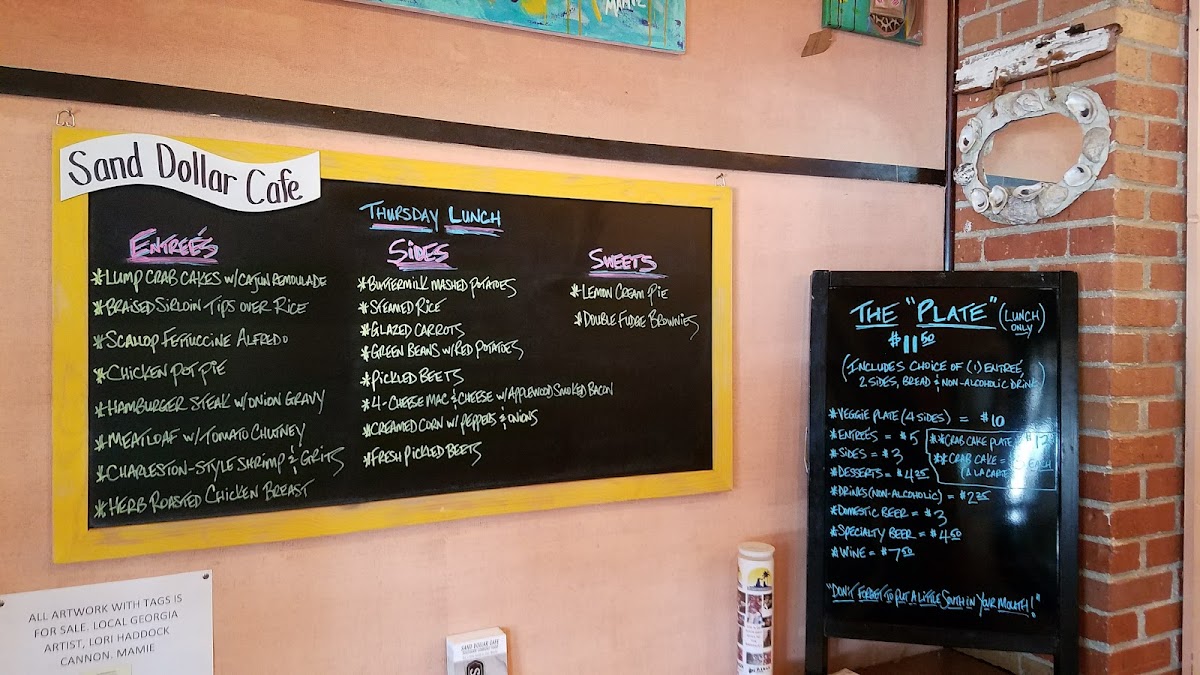 MAMIE
Sand Dollar Cafe
THURSDAY LUNCH
ENTREÉS
*LUMP CRAB CAKES W/CAJUN REMOULADE
*BRAISED SIRLOIN TIPS OVER RICE
*SCALLOP FETTUCCINE ALFREDO
*CHICKEN POT PIE
*HAMBURGER STEAK W/ONION GRAVY
*MEATLOAF W/TOMATO CHUTNEY
*CHARLESTON-STYLE SHRIMP & GRITS
*HERB ROASTED CHICKEN BREAST
SIDES
*BUTTERMILK MASHED POTATOES
*STEAMED RICE
*GLAZED CARROTS
*GREEN BEANS W/RED POTATOES
*PICKLED BEETS
*4-CHEESE MAC & CHEESE W/APPLEWOOD SMOKED BACON
*CREAMED CORN W/PEPPERS & ONIONS
*FRESH PICKLED BEETS
SWEETS
*LEMON CREAM PIE
*DOUBLE FUDGE BROWNIES
THE "PLATE" (LUNCH ONLY)
$11.50
(INCLUDES CHOICE OF (1) ENTREÉ,
2 SIDES, BREAD & NON-ALCOHOLIC DRINK)
*VEGGIE PLATE (4 SIDES) = $10
*ENTREÉS = $5
*SIDES = $3
*DESSERTS = $4.25
*DRINKS (NON-ALCOHOLIC) = $2.25
*DOMESTIC BEER = $3
*SPECIALTY BEER = $4.50
*WINE = $7.50
**CRAB CAKE PLATE
**CRAB CAKE = EACH
(A LA CARTE)
"DON'T FORGET TO PUT A LITTLE SOUTH IN YOUR MOUTH!"
ALL ARTWORK WITH TAGS IS
FOR SALE. LOCAL GEORGIA
ARTIST, LORI HADDOCK
CANNON. MAMIE
SAND DOLLAR CAFE